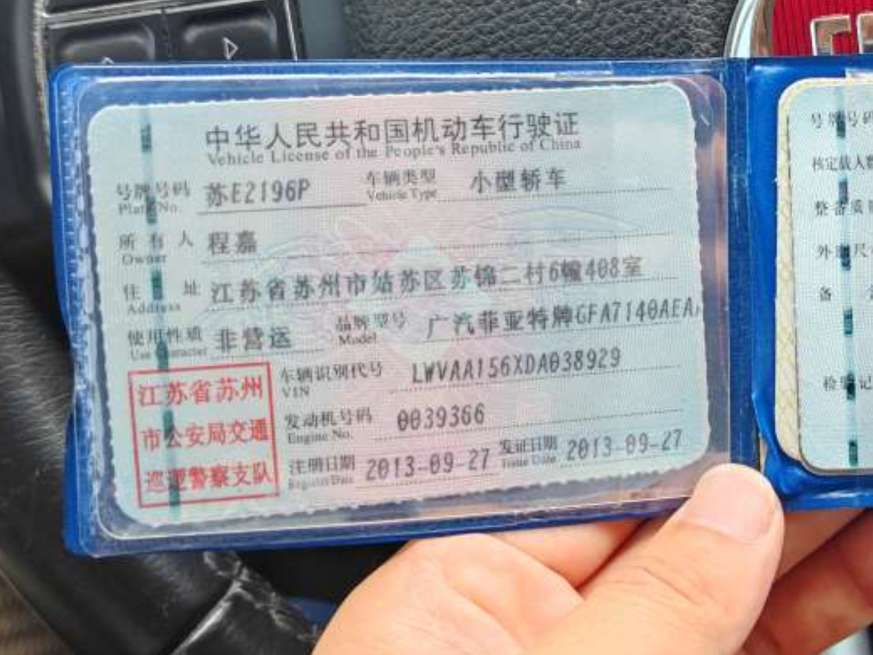 中华人民共和国机动车行驶证
Vehicle License of the People's Republic of China
号牌号码 苏E2196P 车辆类型 小型轿车
Plate No. Vehicle Type
所有人 程嘉
Owner
住址 江苏省苏州市姑苏区苏锦二村6幢408室
Address
使用性质 非营运 品牌型号 广汽菲亚特牌GFA7140AEA
Use Character Model
江苏省苏州
市公安局交通
巡逻警察支队
车辆识别代号 LWVAA156XDA038929
VIN
发动机号码 0039366
Engine No.
注册日期 2013-09-27 发证日期 2013-09-27
Register Date Issue Date
号牌号码
核定载人数
整备质
外廓尺
备
检验记